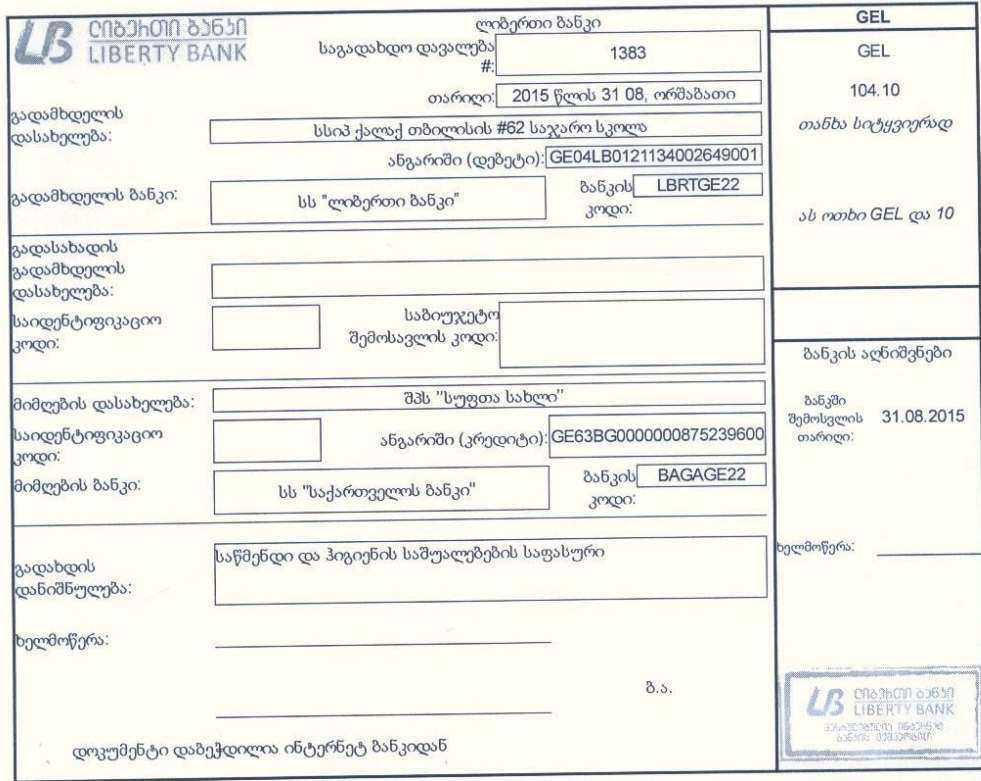 ლიბერთი ბანკი
LIBERTY BANK
ლიბერთი ბანკი
საგადახდო დავალება #: 1383
თარიღი: 2015 წლის 31 08, ორშაბათი
გადამხდელის
დასახელება: სსიპ ქალაქ თბილისის #62 საჯარო სკოლა
ანგარიში (დებეტი): GE04LB0121134002649001
გადამხდელის ბანკი: სს "ლიბერთი ბანკი" ბანკის კოდი: LBRTGE22
გადასახადის
გადამხდელის
დასახელება:
საიდენტიფიკაციო
კოდი:
საბიუჯეტო
შემოსავლის კოდი:
მიმღების დასახელება: შპს "სუფთა სახლი"
საიდენტიფიკაციო
კოდი:
ანგარიში (კრედიტი): GE63BG0000000875239600
მიმღების ბანკი: სს "საქართველოს ბანკი" ბანკის კოდი: BAGAGE22
გადახდის
დანიშნულება:
საწმენდი და ჰიგიენის საშუალებების საფასური
ხელმოწერა:
ბ.ა.
დოკუმენტი დაბეჭდილია ინტერნეტ ბანკიდან
GEL
GEL
104.10
თანხა სიტყვიერად
ას ოთხი GEL და 10
ბანკის აღნიშვნები
ბანკში
შემოსვლის
თარიღი: 31.08.2015
ხელმოწერა:
ლიბერთი ბანკი
LIBERTY BANK